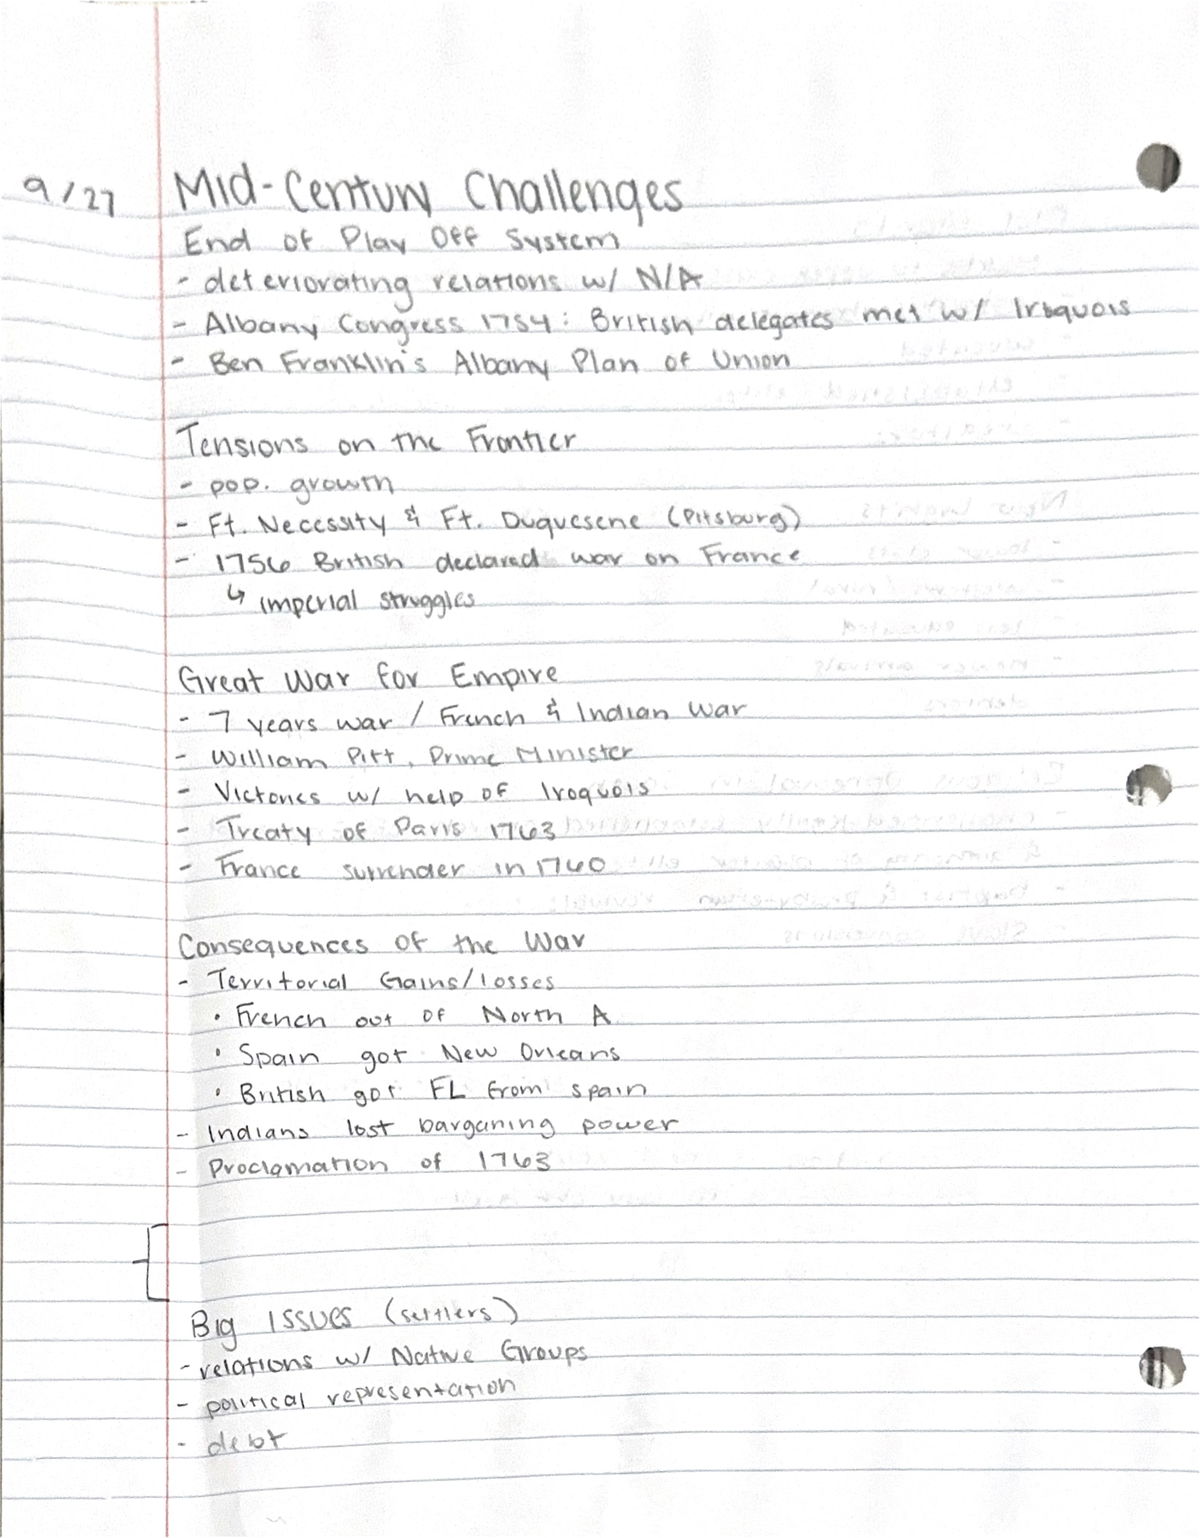 9/27 Mid-Century Challenges
End of Play Off System
- deteriorating relations w/ N/A
- Albany Congress 1754: British delegates met w/ Iroquois
- Ben Franklin's Albany Plan of Union
Tensions on the Frontier
- pop. growth
- Ft. Necessity & Ft. Duquesene (Pitsburg)
- 1756 British declared war on France
↳ imperial struggles
Great War for Empire
- 7 years war / French & Indian War
- William Pitt, Prime Minister
- Victories w/ help of Iroquois
- Treaty of Paris 1763
- France surrender in 1760
Consequences of the War
- Territorial Gains/losses
• French out of North A
• Spain got New Orleans
• British got FL from spain
- Indians lost barganing power
- Proclamation of 1763
Big Issues (settlers)
- relations w/ Native Groups
- political representation
- debt